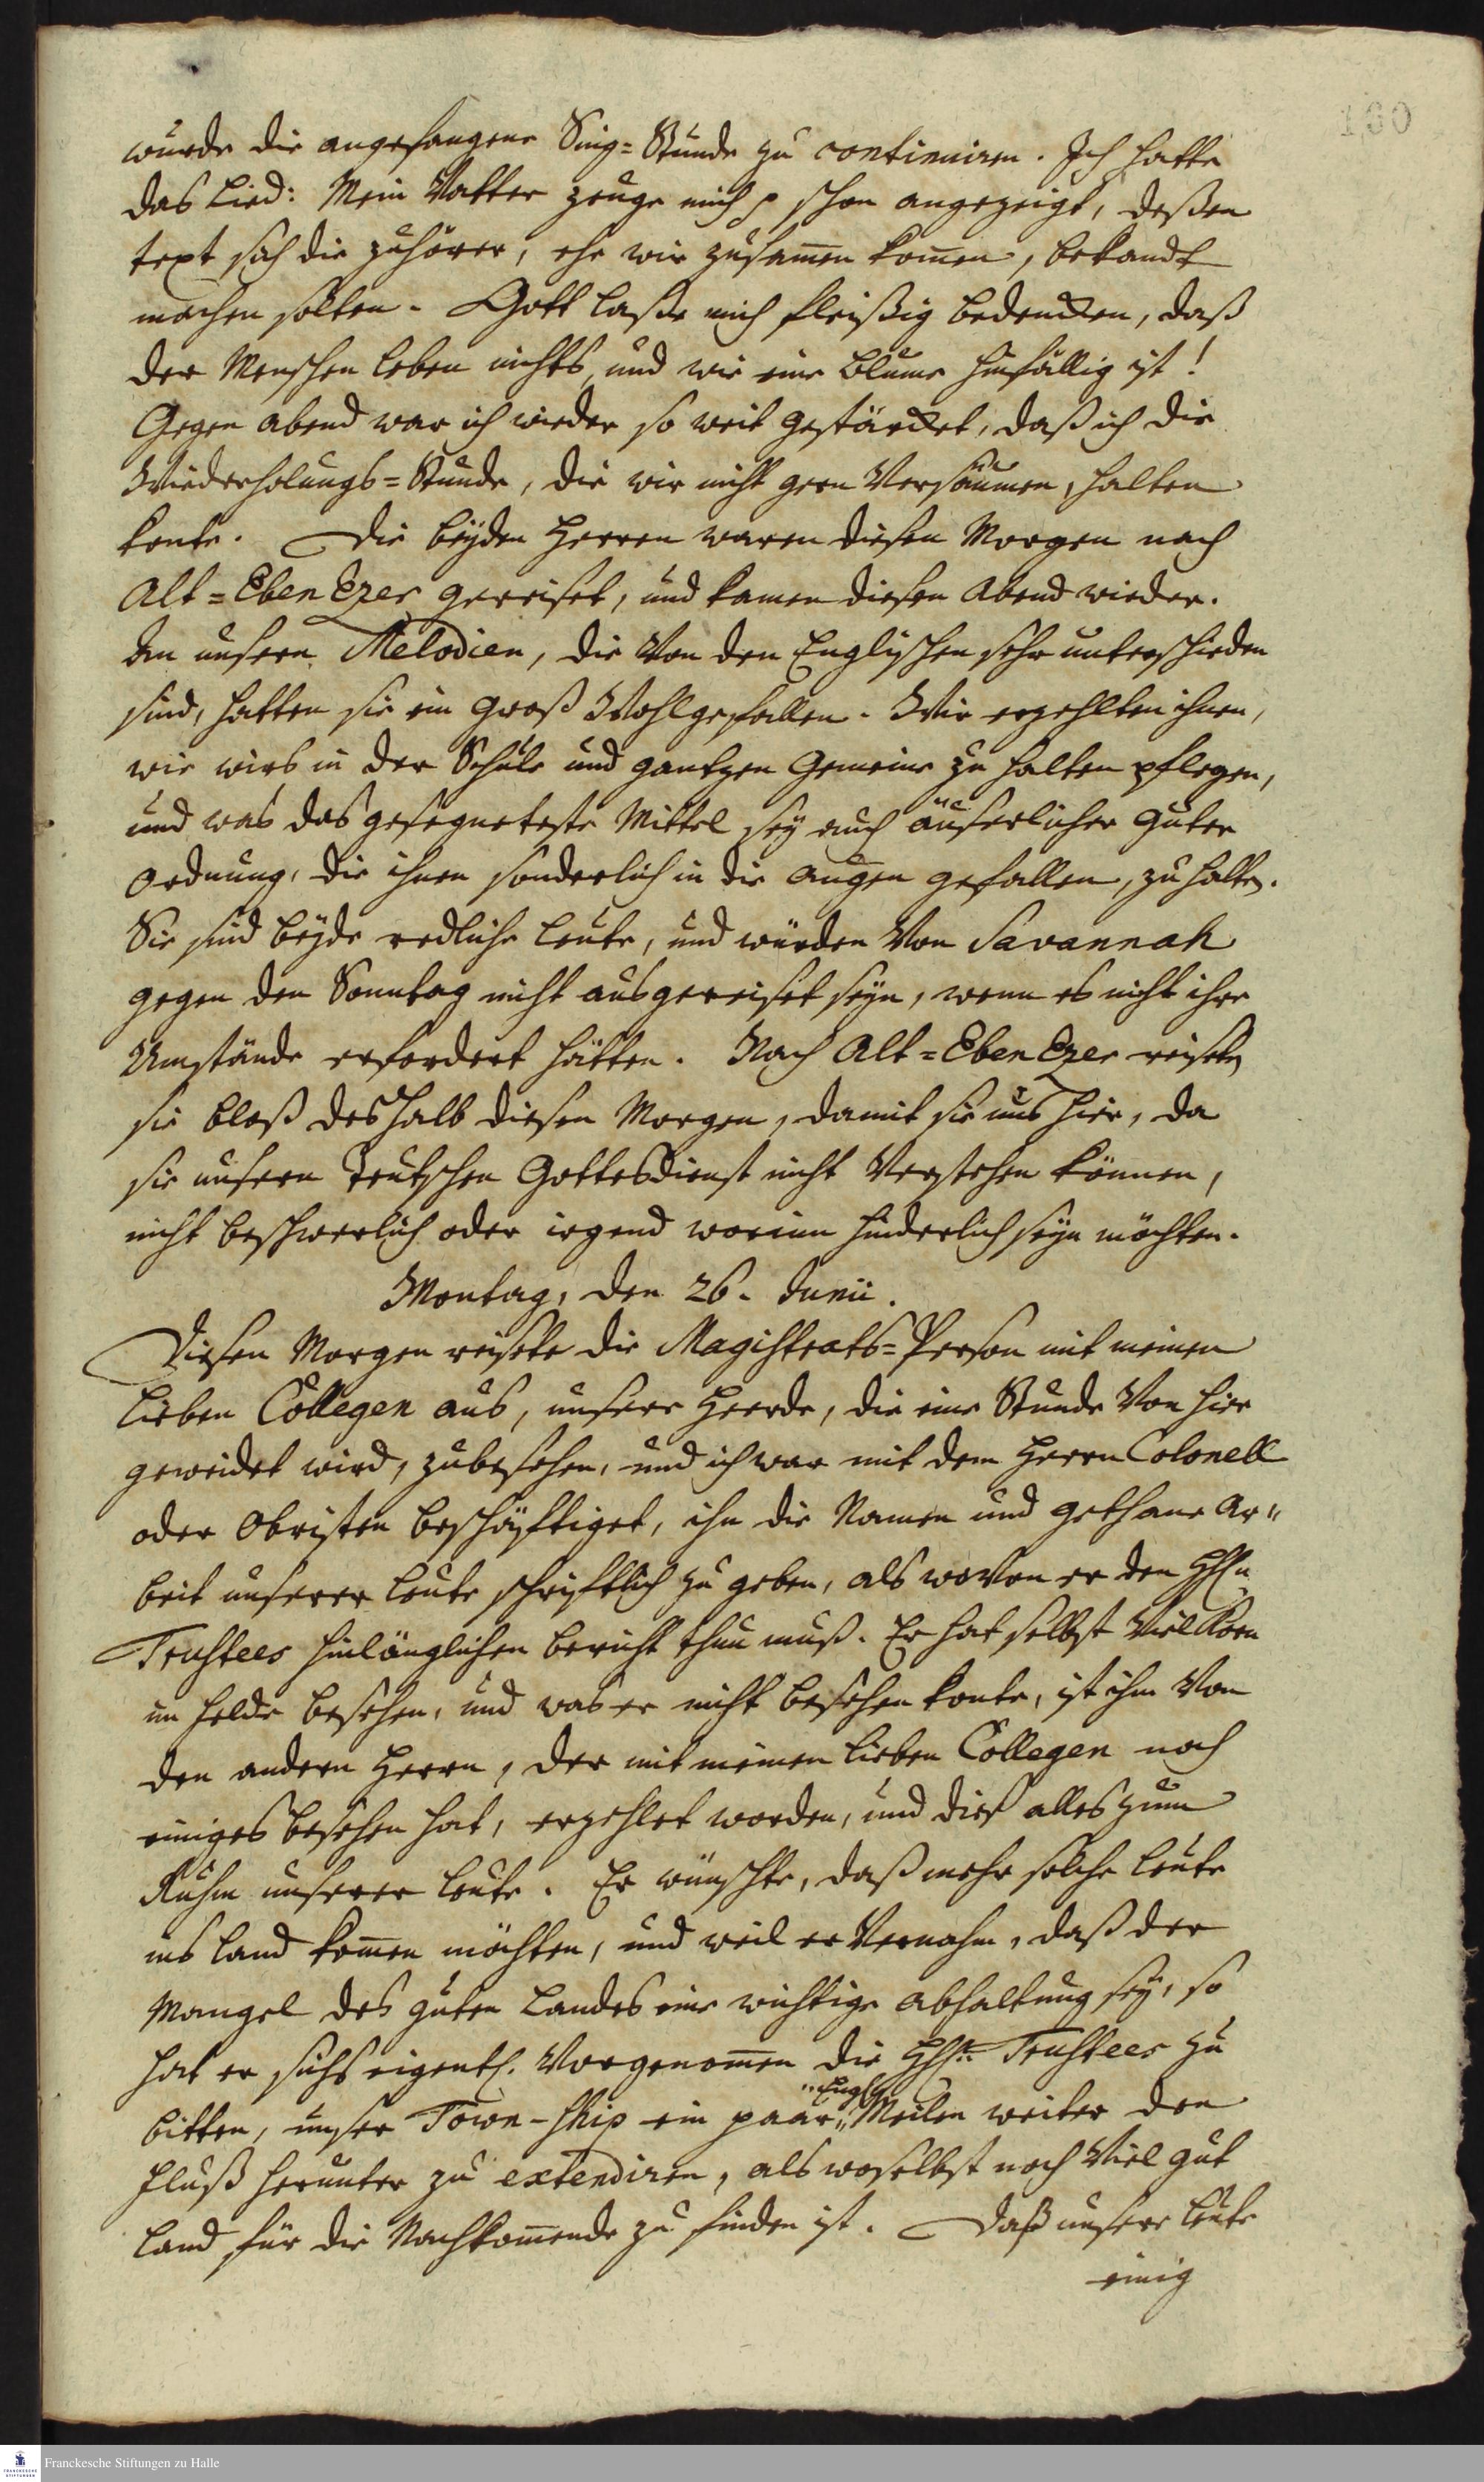 130
wurde die angefangene Sing=Stunde zu continuiren. Ich hatte
das Lied: Mein Vatter zeuge mich p schon angezeigt, deßen
text sich die zuhörer, ehe wir zusam̄en kom̄en, bekandt
machen solten. Gott laße mich fleißig bedencken, daß
der Menschen leben nichts, und wie eine blume hinfällig ist!
Gegen abend war ich wieder so weit gestärcket, daß ich die
Wiederholungs=Stunde, die wir nicht gern Versäumen, halten
konte. Die beyden Herren waren diesen Morgen nach
Alt=EbenEzer gereiset, und kamen diesen Abend wieder.
An unsern Melodien, die Von den Englischen sehr unterschieden
sind, hatten sie ein groß Wohlgefallen. Wir erzehlten ihnen,
wie wirs in der Schule und gantzen Gemeine zu halten pflegen,
und was das gesegneteste Mittel sey auch äuserlicher guter
Ordnung, die ihnen sonderlich in die augen gefallen, zu halten.
Sie sind beyde redliche leute, und würden Von Savannah
gegen den Sonntag nicht ausgereiset seyn, wenn es nicht ihre
Umstände erfordert hätten. Nach Alt=EbenEzer reiseten
sie bloß deshalb diesen Morgen, damit sie uns hier, da
sie unsern Teutschen Gottesdienst nicht Verstehen können,
nicht beschwerlich oder irgend worinn hinderlich seyn möchten.
Montag, den 26. Junii.
Diesen Morgen reisete die Magistrats=Person mit meinen
lieben Collegen aus, unsere Heerde, die eine Stunde Von hier
geweidet wird, zubesehen, und ich war mit dem Herrn Colonell
oder Obristen beschäfftiget, ihn die Namen und gethane Ar"
beit unserer leute schrifftlich zu geben, als wovon er den HHn
Trustees hinlänglichen bericht thun muß. Er hat selbst Viel Korn
im felde besehen, und was er nicht besehen konte, ist ihm Von
den andern Herrn, der mit meinen lieben Collegen noch
einiges besehen hat, erzehlet worden, und dies alles zum
Ruhm unserer leute. Er wünschte, daß mehr solche leute
ins land kom̄en möchten, und weil er Vernahm, daß der
Mangel des guten landes eine wichtige abhaltung sey, so
hat er sichs eigentl. Vorgenom̄en die HHn Trustees zu
bitten, unser Town-ship ein paar "Engl." Meilen weiter den
fluß herunter zu extendiren, als woselbst noch Viel gut
land für die Nachkom̄ende zu finden ist. Daß unsere leute
einig
Franckesche Stiftungen zu Halle